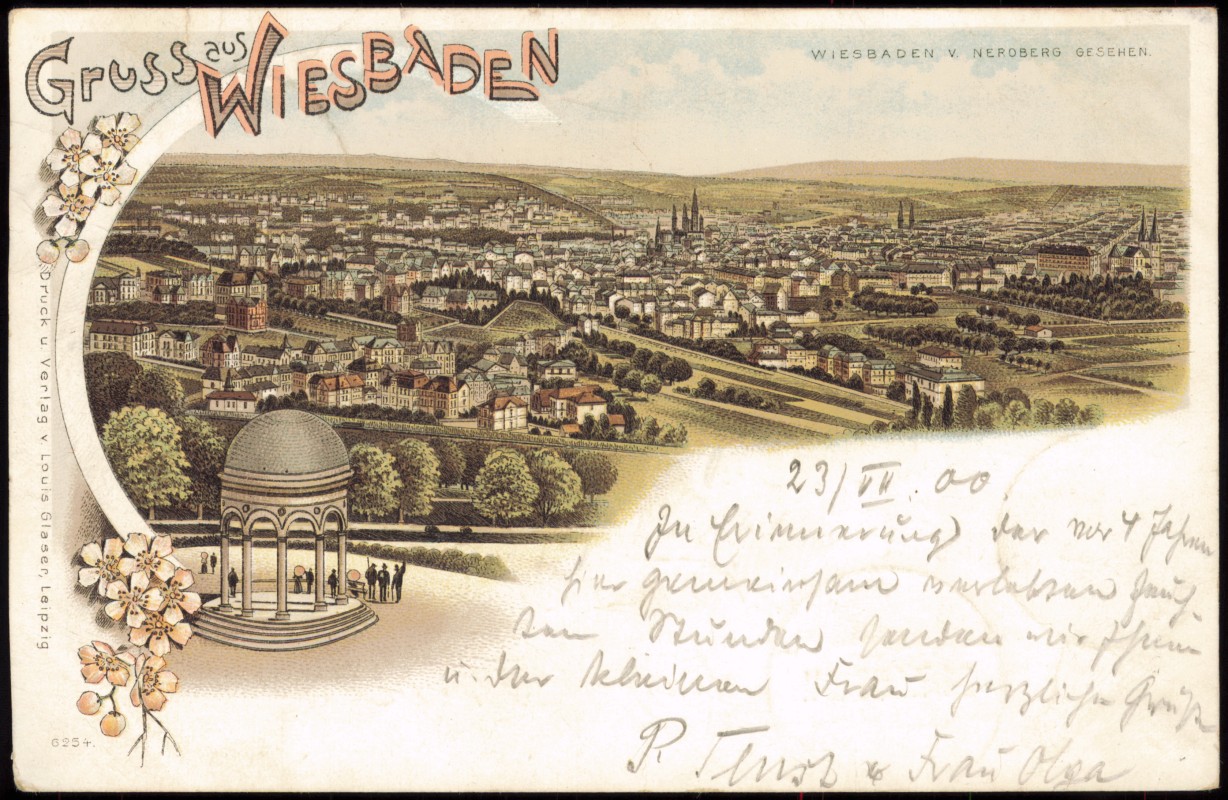 Gruss aus WIESBADEN
WIESBADEN V. NEROBERG GESEHEN.
Druck u Verlag v Louis Glaser, Leipzig
6254.
23/VII. 00
In Erinnerung der vor 4 Jahren
hier gemeinsam verlebten
Stunden senden wir Ihnen
u. der kleinen Frau herzliche Grüße
P. & Frau Olga